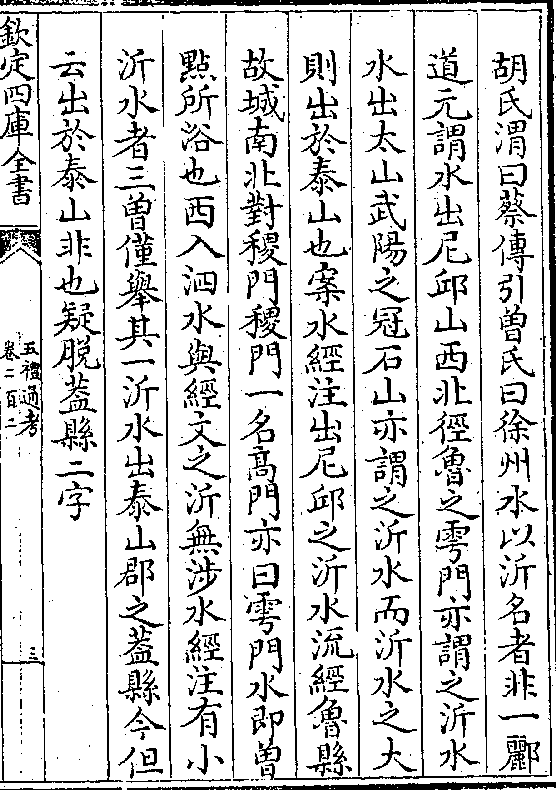 胡氏渭曰蔡傳引曽氏曰徐州水以沂名者非一酈
道元謂水出尼邱山西北徑魯之雩門亦謂之沂水
水出太山武陽之冠石山亦謂之沂水而沂水之大
則出於泰山也案水經注出尼邱之沂水流經魯縣
故城南北對稷門稷門一名髙門亦曰雩門水即曽
㸃所浴也西入泗水與經文之沂無渉水經注有小
沂水者三曽僅舉其一沂水出泰山郡之葢縣今但
云出於泰山非也疑脱葢縣二字
欽定四庫全書
五禮通考
卷二百二
三